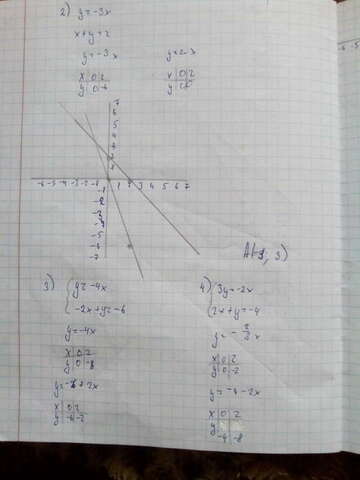 2) y = -3x
x + y = 2
y = -3x y = 2-x
x | 0 | 2 x | 0 | 2
y | 0 | -6 y | 2 | 0
7
6
5
4
3
2
1
-6 -5 -4 -3 -2 -1 1 2 3 4 5 6 7
-1
-2
-3
-4
-5
-6
-7
A(-1, 3)
3) { y = -4x 4) { 3y = -2x
-2x + y = -6 2x + y = -4
y = -4x
x | 0 | 2 x | 0 | 2
y | 0 | -8 y | 0 | -2
y = -6 + 2x y = -4 - 2x
x | 0 | 2 x | 0 | 2
y | -6 | -2 y | -4 | -8